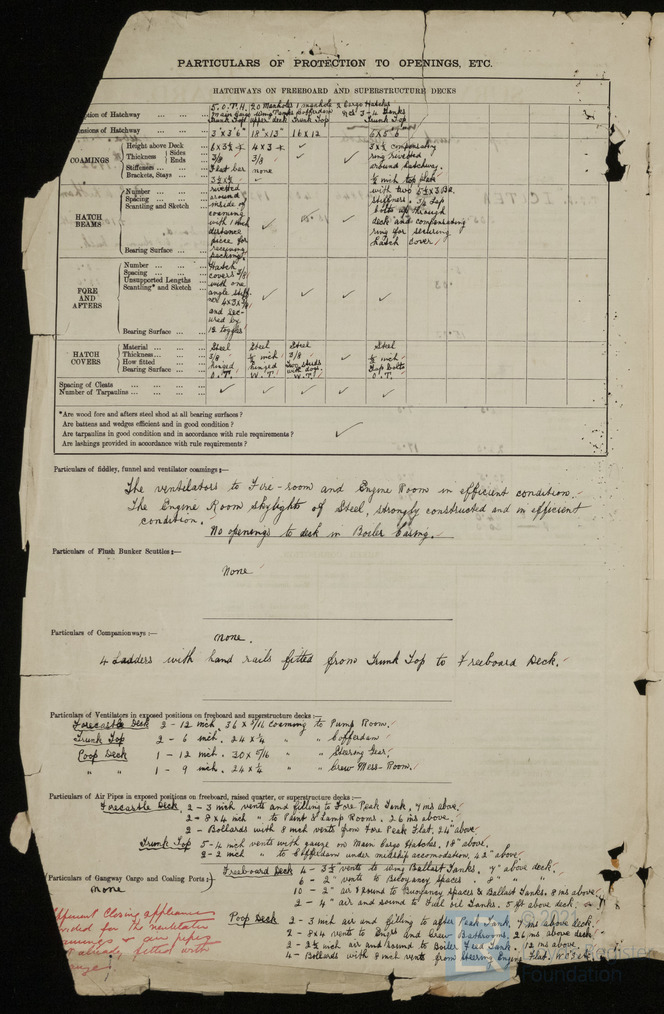 PARTICULARS OF PROTECTION TO OPENINGS, ETC.
HATCHWAYS ON FREEBOARD AND SUPERSTRUCTURE DECKS
ption of Hatchway
5. O.T.H. 20 Manholes 1 manhole 2 Cargo Hatches
Trunk Top upper deck Trunk Top Trunk Top
ensions of Hatchway 3'x3'6" 18"x13" 16x12
COAMINGS
Height above Deck
Thickness Sides Ends
Stiffeners
Brackets, Stays
6x3½ 4x3
3/8 3/8
Flat bar none
3x½ compensating
ring rivetted
around hatchway.
½ inch top plate
with two
stiffners
bolts up through
deck and compensating
ring for securing
hatch cover
HATCH BEAMS
Number
Spacing
Scantling and Sketch
Bearing Surface
rivetted
around
inside of
coaming
with 1 inch
distance
piece for
receiving
packing
FORE AND AFTERS
Number
Spacing
Unsupported Lengths
Scantling* and Sketch
Bearing Surface
Hatch
covers 3/8
with one
angle stiff-
ner 4x3x3/8
and sec-
ured by
12 toggles
HATCH COVERS
Material
Thickness
How fitted
Bearing Surface
Steel Steel Steel Steel
3/8 ½ inch 3/8 ½ inch
hinged hinged Two studs Tap bolts
O.T. W.T. with dogs W.T. O.T.
Spacing of Cleats
Number of Tarpaulins
*Are wood fore and afters steel shod at all bearing surfaces?
Are battens and wedges efficient and in good condition?
Are tarpaulins in good condition and in accordance with rule requirements?
Are lashings provided in accordance with rule requirements?
Particulars of fiddley, funnel and ventilator coamings:—
The ventilators to Fire-room and Engine Room in efficient condition.
The Engine Room skylights of Steel, strongly constructed and in efficient
condition.
No openings to deck in Boiler Casing.
Particulars of Flush Bunker Scuttles:—
None
Particulars of Companionways:—
None.
4 Ladders with hand rails fitted from Trunk Top to Freeboard Deck.
Particulars of Ventilators in exposed positions on freeboard and superstructure decks:—
Forecastle Deck 2 - 12 inch. 36 x 5/16 coaming to Pump Room.
Trunk Top 2 - 6 inch. 24 x ¼ " " Cofferdam
Poop Deck 1 - 12 inch. 30 x 5/16 " " Steering Gear.
" " 1 - 9 inch. 24 x ¼ " " Crew Mess-Room.
Particulars of Air Pipes in exposed positions on freeboard, raised quarter, or superstructure decks:—
Forecastle Deck. 2 - 3 inch vents and filling to Fore Peak Tank. 7 ins above.
2 - 8 x 4 inch " to Paint & Lamp Rooms. 26 ins above.
2 - Bollards with 8 inch vents from Fore Peak Flat. 24" above
Trunk Top 5 - 4 inch vents with gauze on Main Cargo Hatches. 18" above.
2 - 2 inch " to Cofferdam under midship accomodation. 42" above.
Freeboard Deck 4 - 3½ vents to wing Ballast Tanks. 7" above deck.
6 - 2" vents to Buoyancy spaces
10 - 2" air & sound to Buoyancy spaces & Ballast Tanks. 8 ins above
2 - 4" air and sound to Fuel oil Tanks. 5 ft above deck.
Particulars of Gangway Cargo and Coaling Ports:—
None
Poop Deck 2 - 3 inch air and filling to after Peak Tank. 7 ins above deck.
2 - 8x4 vents to Engrs and Crew Bathrooms. 26 ins above deck.
2 - 2½ inch air and sound to Boiler Feed Tank. 12 ins above.
4 - Bollards with 8 inch vents from Steering Engine Flat.
fficient closing appliances
vided for the ventilator
amings & air pipes
already fitted with
© 202
Register
Foundation